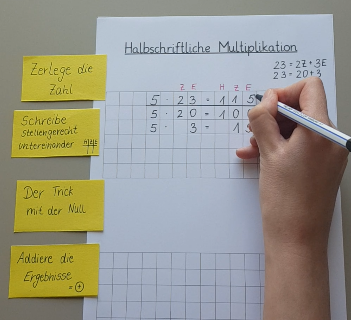 Halbschriftliche Multiplikation
23 = 2Z + 3E
23 = 20 + 3
Z E H Z E
5 · 23 = 115
5 · 20 = 100
5 · 3 = 15
Zerlege die
Zahl
Schreibe
stellengerecht
untereinander HZE
Der Trick
mit der Null
Addiere die
Ergebnisse
= +